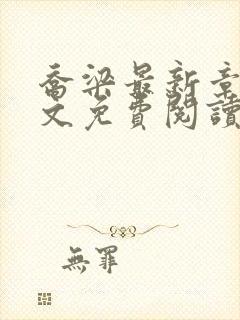 喬梁最新章
文免費閱讀
無罪